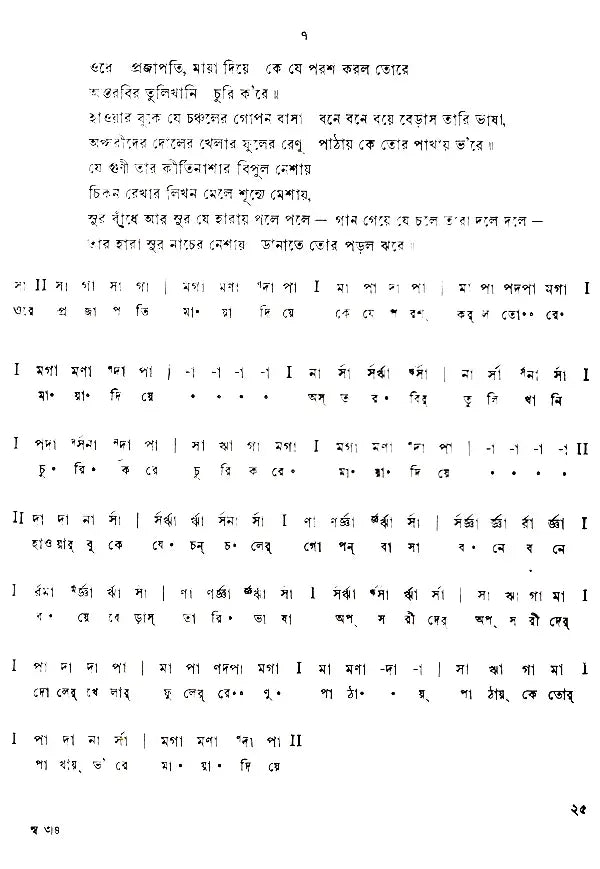 ৭
ওরে প্রজাপতি, মায়া দিয়ে কে যে পরশ করল তোরে
অস্তরবির তুলিখানি চুরি ক'রে ॥
হাওয়ার বুকে যে চঞ্চলের গোপন বাসা বনে বনে বয়ে বেড়াস তারি ভাষা,
অপ্সরীদের দোলের খেলার ফুলের রেণু পাঠায় কে তোর পাখায় ভ'রে ॥
যে গুণী তার কীর্তিনাশার বিপুল নেশায়
চিকন রেখার লিখন মেলে শূন্যে মেশায়,
সুর বাঁধে আর সুর যে হারায় পলে পলে — গান গেয়ে যে চলে তারা দলে দলে —
তার হারা সুর নাচের নেশায় ডানাতে তোর পড়ল ঝরে ॥
সা II সা গা সা গা | মগা মণা ণদা পা I মা পা দা পা | মা পা পদপা মগা I
ওরে প্র জা প তি মা• য়া• দি য়ে কে যে প রশ্ কর্ ল তো•• রে•
I মগা মণা ণদা পা | -া -া -া -া I না র্সা র্সর্ঋা র্সা | না র্সা র্সনা র্সা I
মা• য়া• দি য়ে • • • • অস্ ত র• বির্ তু লি খা নি
I পদা র্সনা ণদা পা | সা ঋা গা মগা I মগা মণা ণদা পা | -া -া -া -া II
চু• রি• ক' রে চু রি ক রে• মা• য়া• দি য়ে • • • •
II দা দা না র্সা | র্সর্ঋা র্ঋা র্সনা র্সা I ণা ণর্জ্ঞা র্ঋা র্সা | র্সর্জ্ঞা র্জ্ঞা র্রা র্জ্ঞা I
হাওয়ার্ বু কে যে• চন্ চ• লের্ গো পন্ বা সা ব• নে ব নে
I র্রর্মা র্জ্ঞা র্ঋা র্সা | ণা ণর্জ্ঞা র্ঋা র্সা I র্সর্ঋা র্সা র্ঋা র্সা | সা ঋা গা মা I
ব• য়ে বে ড়াস্ তা রি• ভা ষা অপ্ স রী দের্ অপ্ স রী দের্
I পা দা দা পা | মা পা ণদপা মগা I মা মণা -দা -া | সা ঋা গা মা I
দো লের্ খে লার্ ফু লের্ রে•• ণু• পা ঠা• • য়্ পা ঠায়্ কে তোর্
I পা দা না র্সা | মগা মণা ণদা পা II
পা খায়্ ভ' রে মা• য়া• দি য়ে
২৫
স্ব ৩।৪